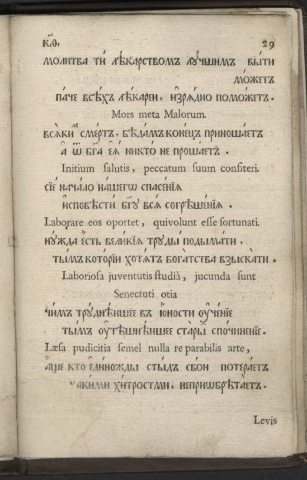 к҃ѳ. 29
молитва ти лѣкарствомъ лучшимъ быти
можетъ
паче всѣхъ лѣкареи, изрядно поможетъ.
Mors meta Malorum.
всѣки смерть, бѣдамъ конецъ приношаетъ
а ѿ бг҃а ея никто не прощаетъ.
Initium salutis, peccatum suum confiteri.
сїе начало нашегѡ спасенїя
исповѣсти бг҃у вся согрѣшенїя.
Laborare eos oportet, qui volunt esse fortunati.
нужда есть великїя труды подымати,
тымъ которїи хотятъ богатства взыскати.
Laboriosa juventutis studia, jucunda sunt
Senectuti otia
чимъ труднѣишее въ юности ученїе
тымъ утѣшнѣишее стары спочиненїе.
Læsa pudicitia semel nulla reparabilis arte,
аще кто единожды стыдъ свои потеряетъ
хитростми, неприѡбрѣтаетъ.
Levis